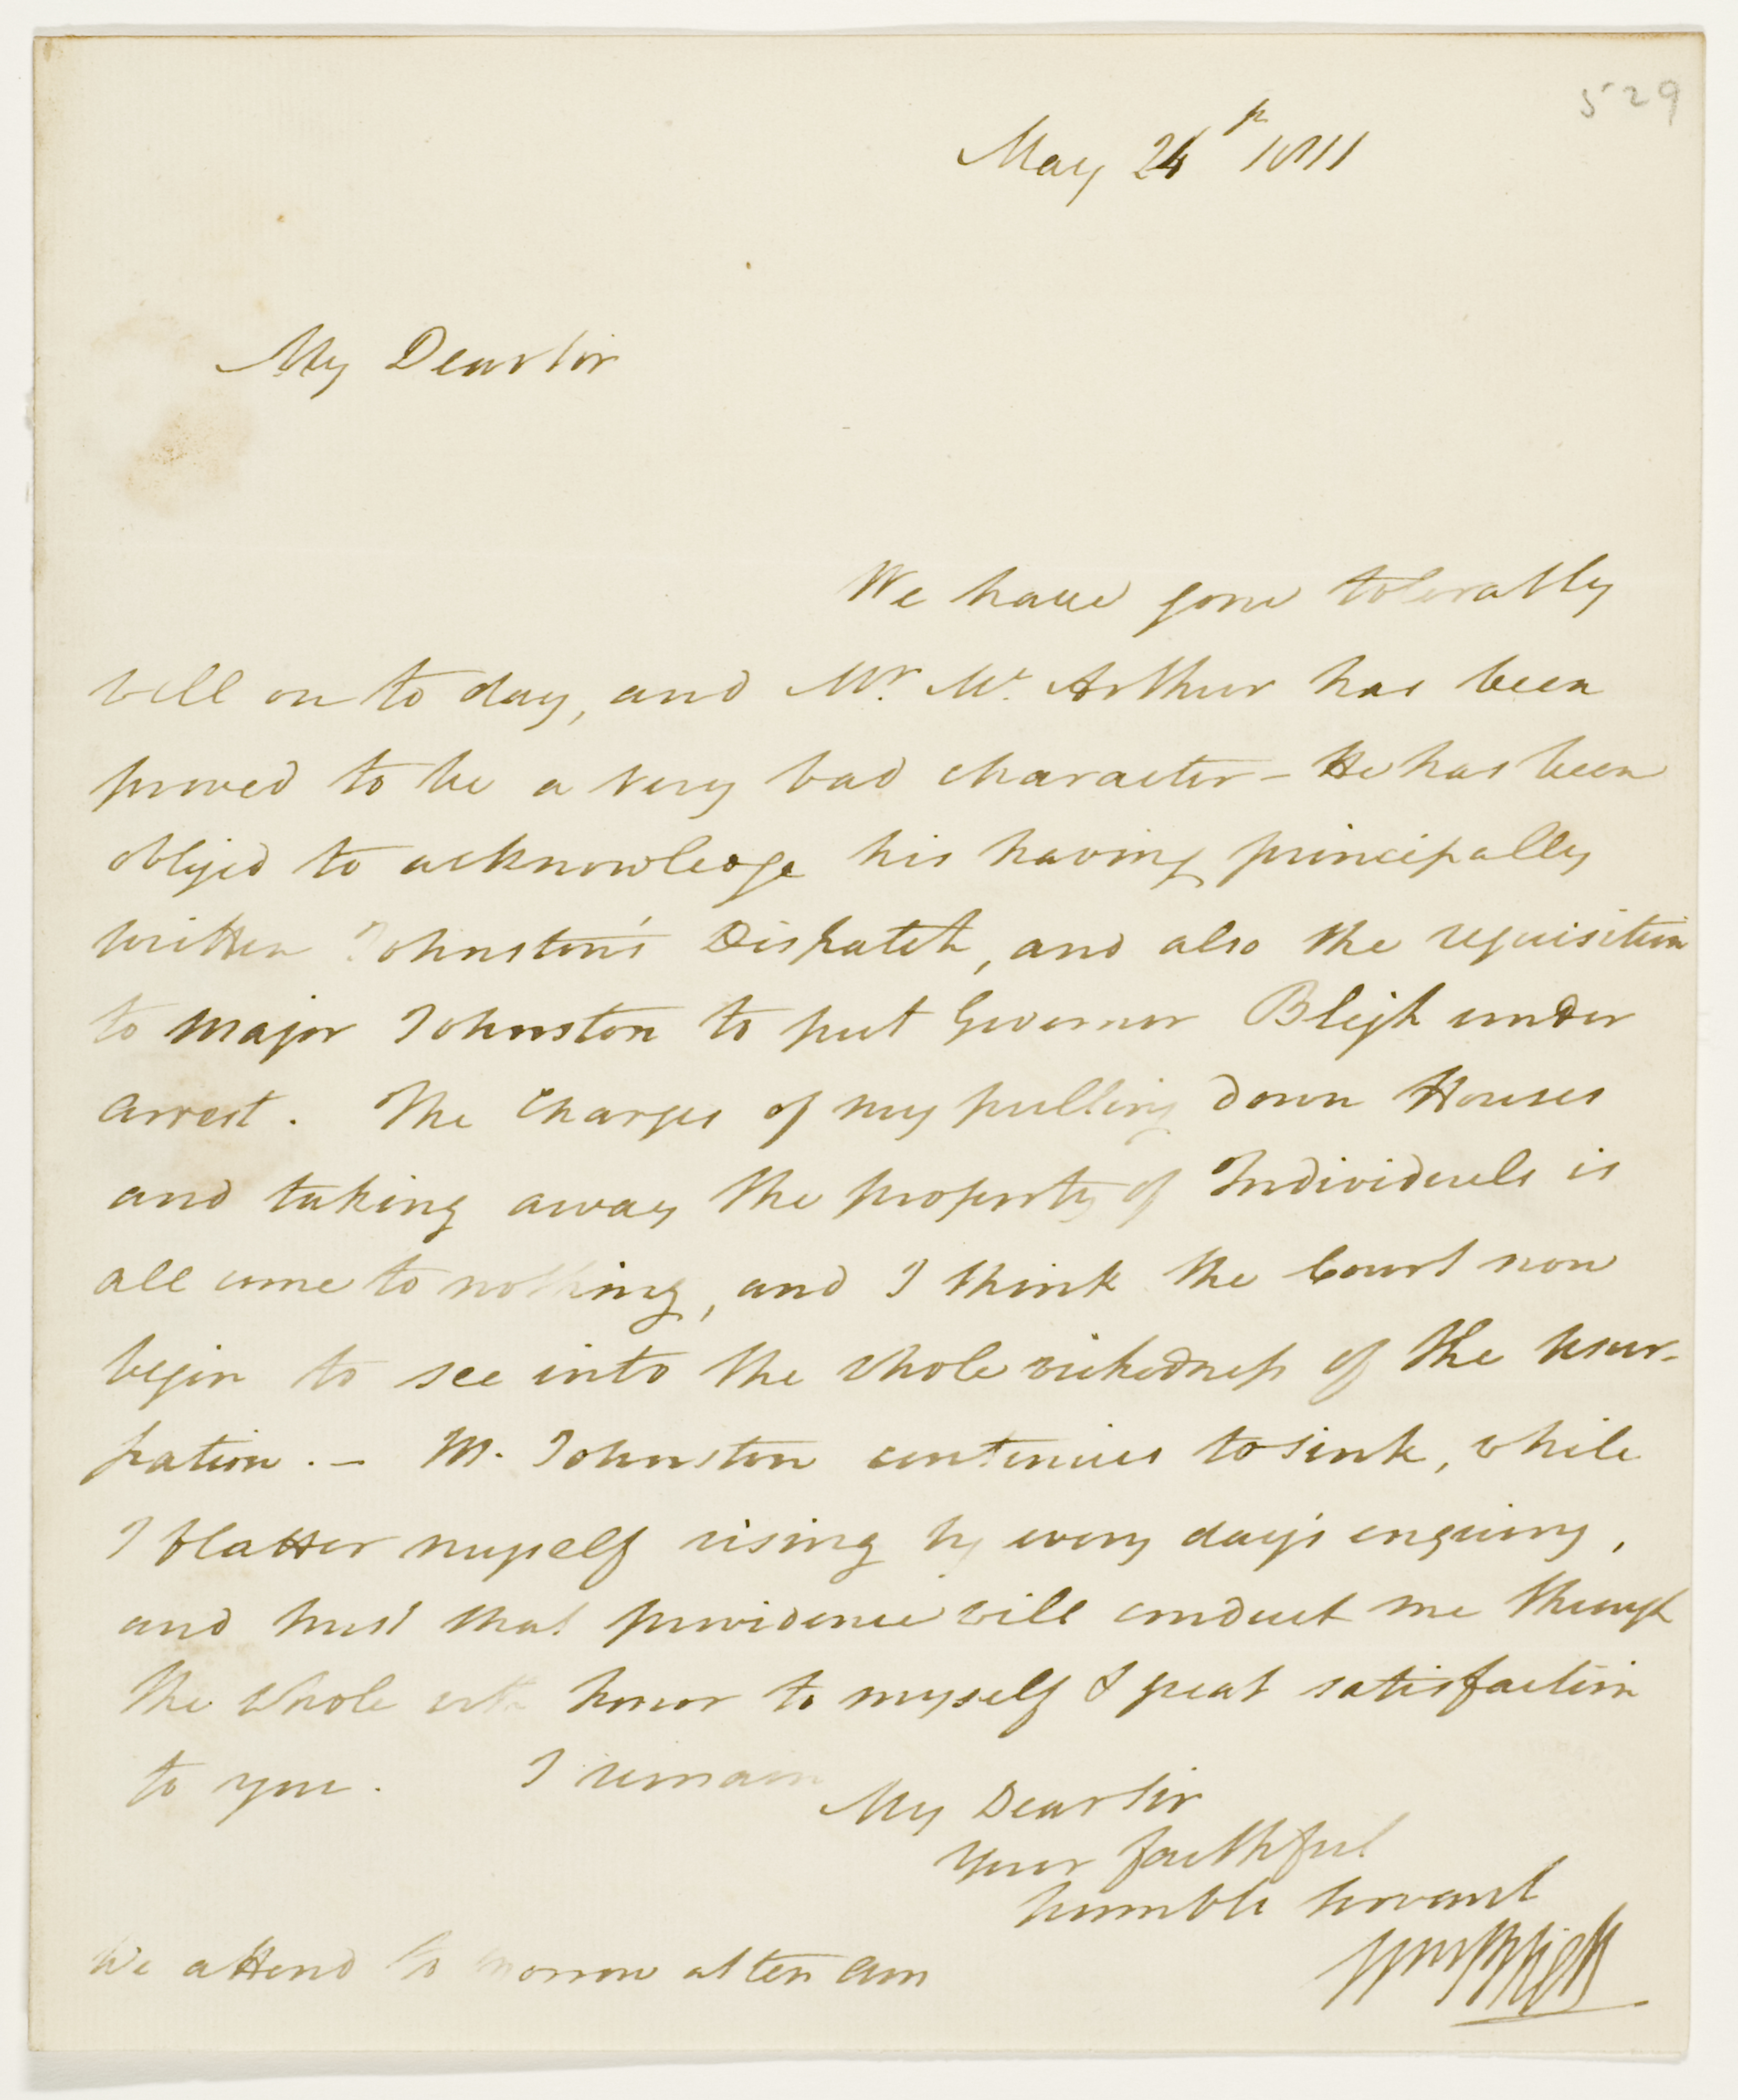 529
May 24th 1811
My Dear Sir
We have gone tolerably
well on to day, and Mr. Mc. Arthur has been
proved to be a very bad character - He has been
obliged to acknowledge his having principally
written Johnston's Dispatch, and also the requisition
to Major Johnston to put Governor Bligh under
arrest. The Charges of my pulling down Houses
and taking away the property of Individuals is
all come to nothing, and I think the Court now
begin to see into the whole wickedness of the usur-
pation. - M. Johnston continues to sink, while
I flatter myself rising by every day's enquiry,
and trust that providence will conduct me through
the whole with honor to myself & great satisfaction
to you. I remain
My Dear Sir
your faithful
humble servant
Wm Bligh
We attend to morrow at ten am